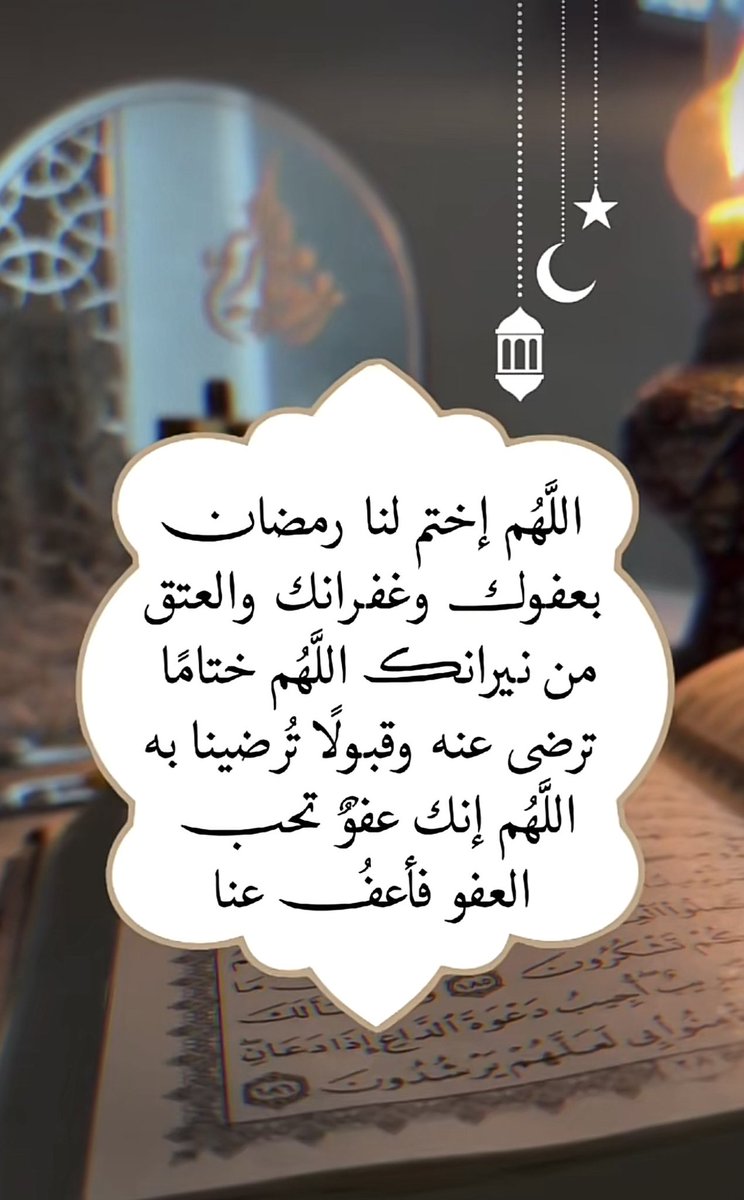 اللَّهُم إختم لنا رمضان
بعفوك وغفرانك والعتق
من نيرانك اللَّهُم ختامًا
ترضى عنه وقبولًا تُرضينا به
اللَّهُم إنك عفوٌ تحب
العفو فأعفُ عنا
تَشْكُرُونَ ١٨٥
أُجِيبُ دَعْوَةَ الدَّاعِ إِذَا دَعَانِ
لَعَلَّهُمْ يَرْشُدُونَ ١٨٦